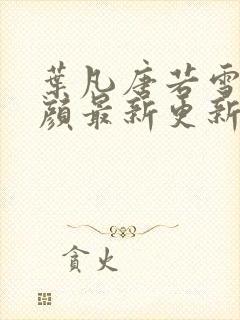 葉凡唐若雪
顏最新更新
貪火